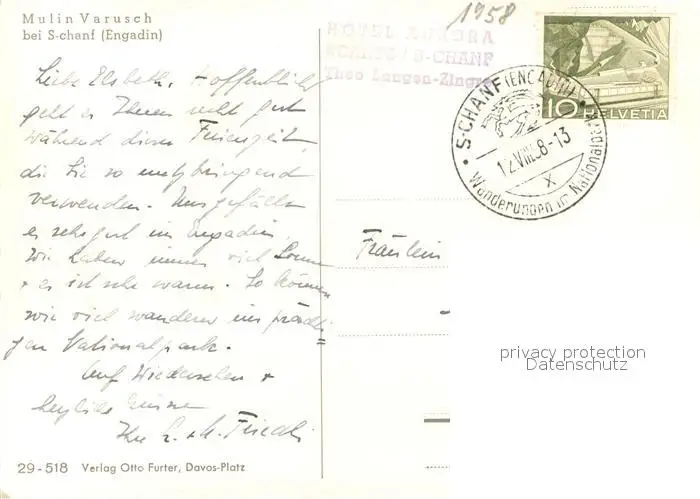 Mulin Varusch
bei S-chanf (Engadin)
1958
HOTEL AURORA
SCANFS / S-CHANF
Theo Langen-Zingre
HELVETIA
10
S-CHANF (ENGADIN)
12.VIII.58-13
X
Wanderungen im Nationalpark
Liebe Elsbeth, Hoffentlich
geht es Ihnen recht gut
während dieser Ferienzeit
die Sie so nutzbringend
verwenden. Uns gefällt
es sehr gut im Engadin,
wir haben immer viel Sonne
+ es ist sehr warm. So können
wir viel wandern im prächti-
gen Nationalpark.
Auf Wiedersehen +
herzliche Grüsse
Ihre
Fräulein
privacy protection
Datenschutz
29-518 Verlag Otto Furter, Davos-Platz